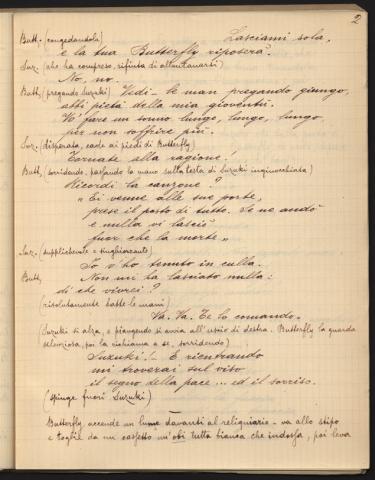 2
Butt. (congedandola) Lasciami sola,
e la tua Butterfly riposerà.
Suz. (che ha compreso, rifiuta di allontanarsi)
No, no.
Butt. (pregando Suzuki) Vedi - le man pregando giungo,
abbi pietà della mia gioventù.
Vo' fare un sonno lungo, lungo, lungo
per non soffrire più.
Suz. (disperata, cade ai piedi di Butterfly)
Tornate alla ragione!
Butt. (sorridendo, passando la mano sulla testa di Suzuki inginocchiata)
Ricordi la canzone?
"Ei venne alle sue porte,
prese il posto di tutto. Se ne andò
e nulla vi lasciò
fuor che la morte„
Suz. (supplichevole e singhiozzante)
Io v'ho tenuto in culla.
Butt. Non m'ha lasciato nulla:
di che vivrei?
(risolutamente batte le mani)
Va. Va. Te lo comando.
(Suzuki si alza, e piangendo si avvia all'uscio di destra. Butterfly la guarda
silenziosa, poi la richiama a se, sorridendo)
Suzuki! - E rientrando
mi troverai sul viso
il segno della pace... ed il sorriso.
(spinge fuori Suzuki)
Butterfly accende un lume davanti al reliquiario - va allo stipo
e toglie da un cassetto un'obi tutta bianca che indossa, poi leva